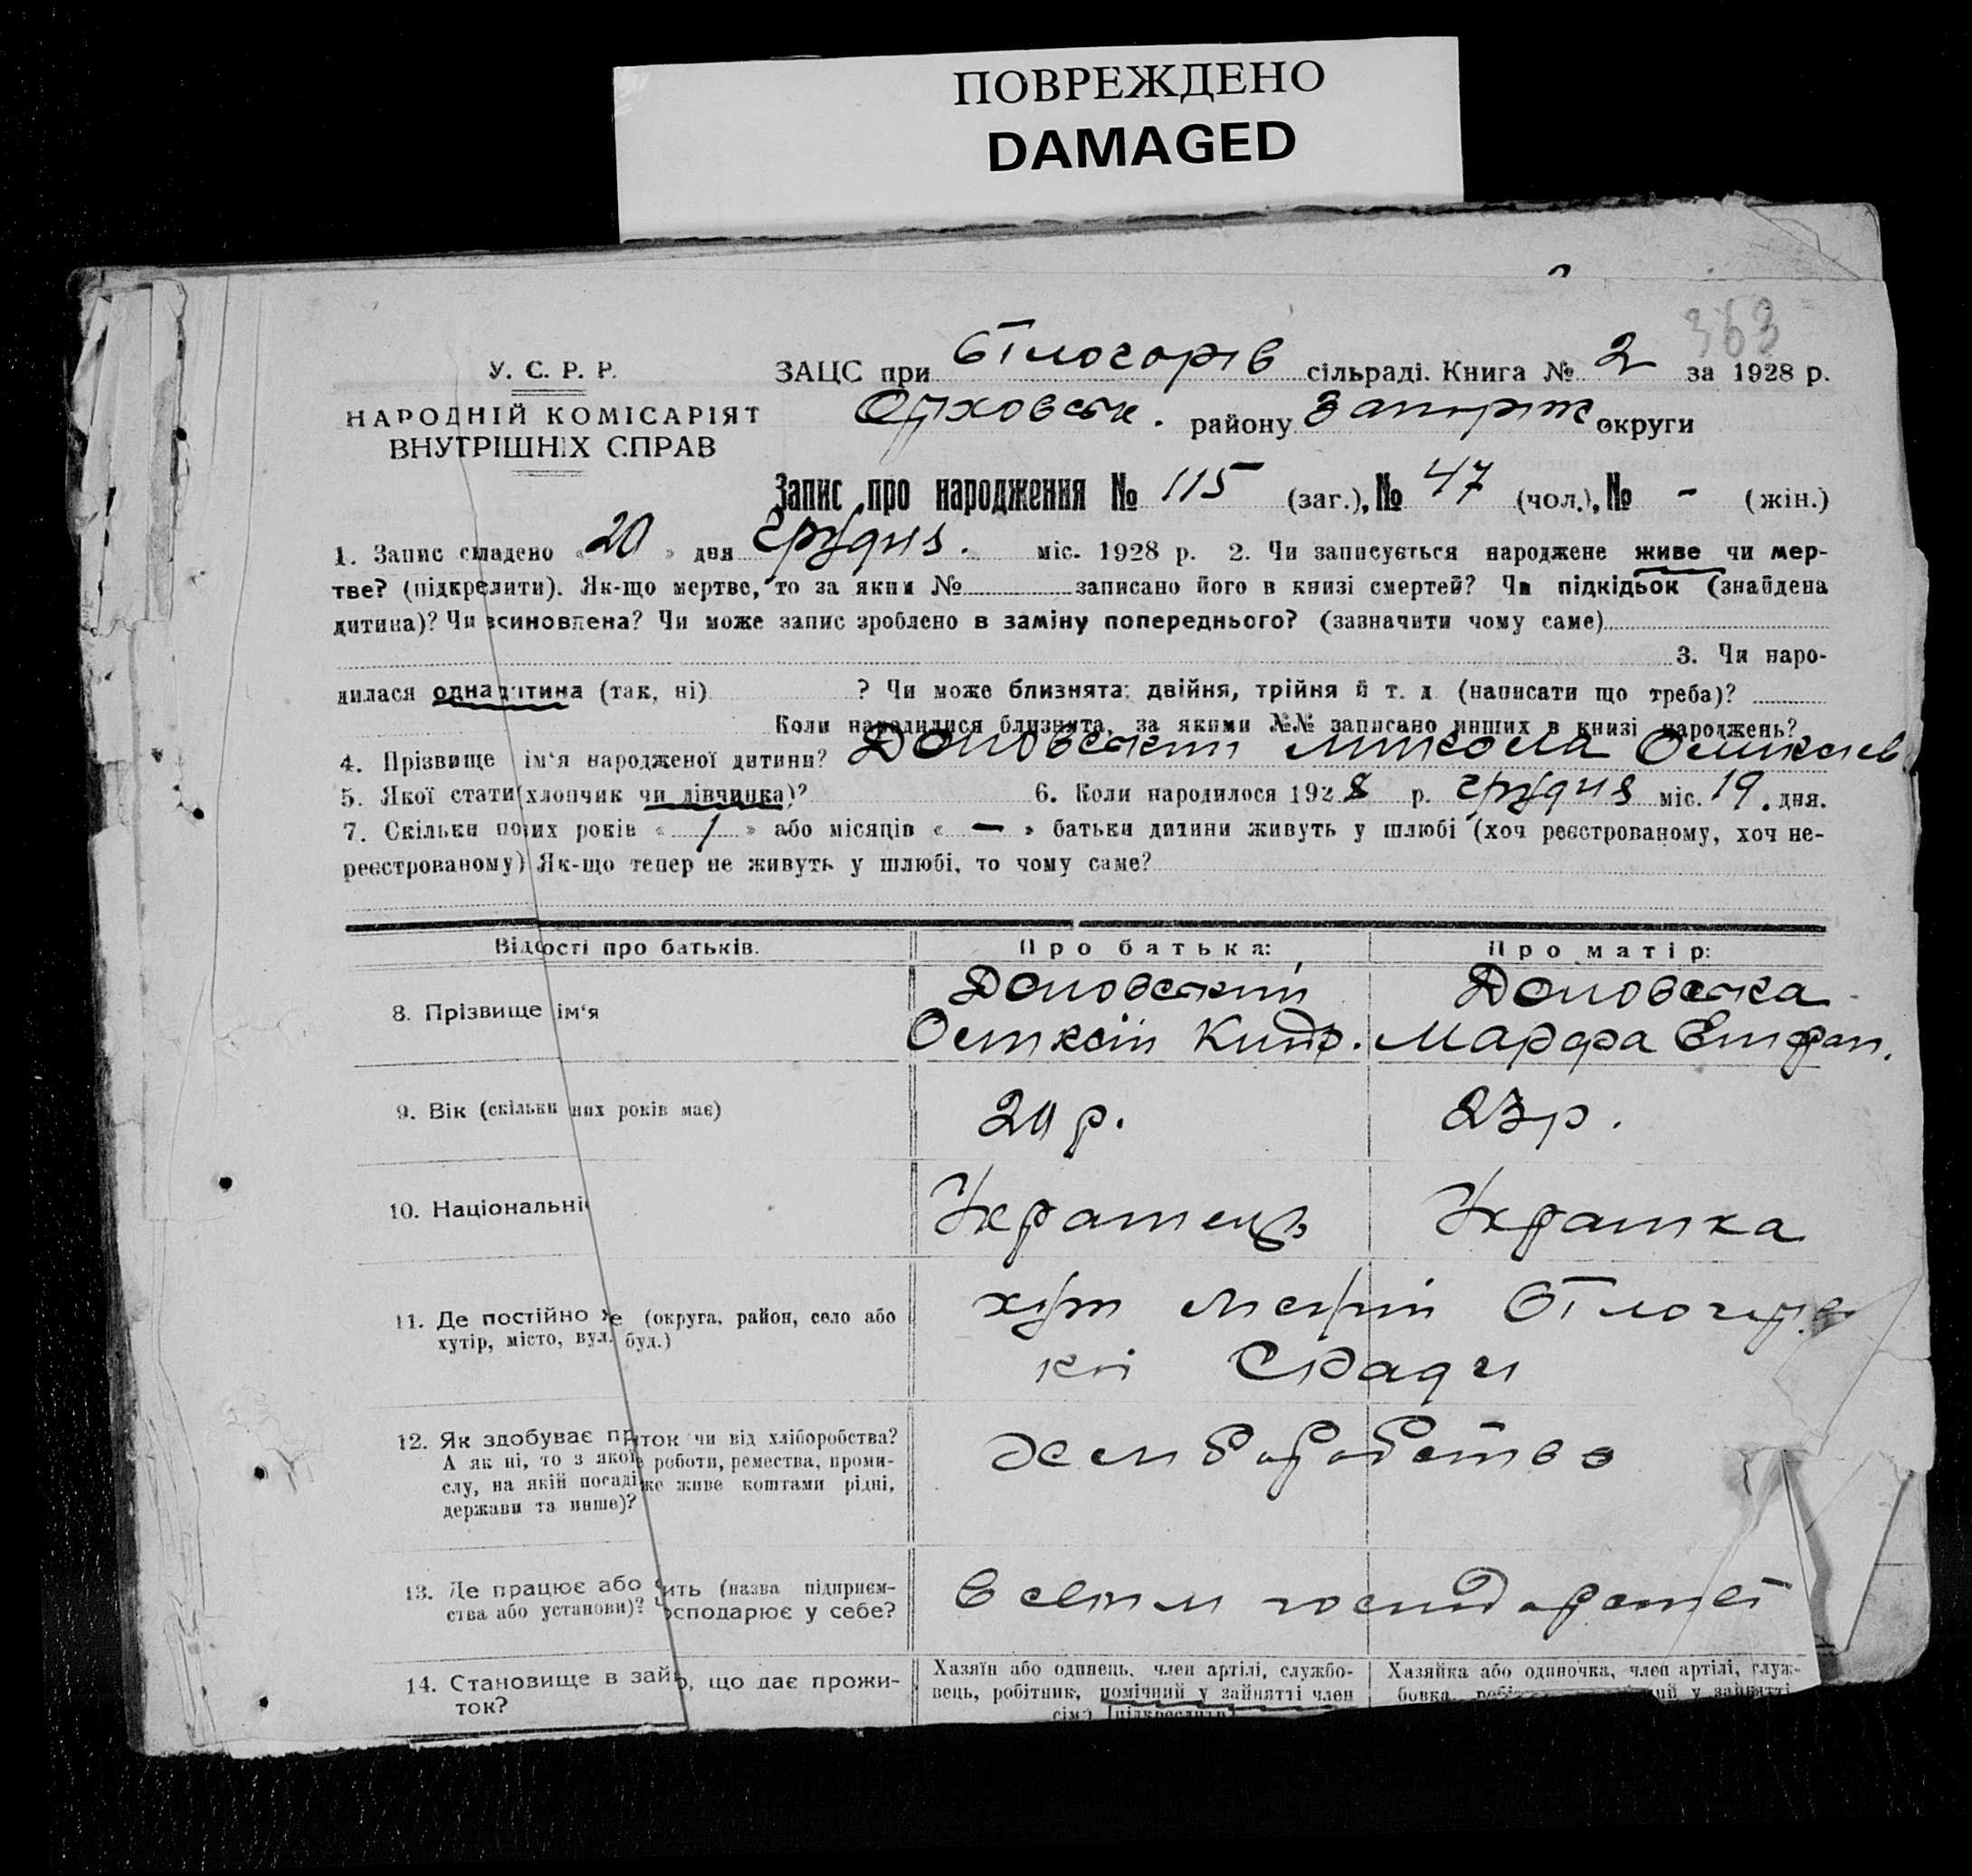 ПОВРЕЖДЕНО
DAMAGED
363
У. С. Р. Р.
НАРОДНІЙ КОМІСАРІЯТ
ВНУТРІШНІХ СПРАВ
ЗАЦС при Білогорів сільраді. Книга № 2 за 1928 р.
Оріховськ. району Запоріж округи
Запис про народження № 115 (заг.), № 47 (чол.), № - (жін.)
1. Запис складено « 20 » дня грудня. міс. 1928 р. 2. Чи записується народжене живе чи мер-
тве? (підкрелити). Як-що мертве, то за яким № записано його в книзі смертей? Чи підкідьок (знайдена
дитина)? Чи всиновлена? Чи може запис зроблено в заміну попереднього? (зазначити чому саме)
3. Чи наро-
дилася одна дитина (так, ні) ? Чи може близнята: двійня, трійня й т. д. (написати що треба)?
Коли народилися близнята, за якими №№ записано инших в книзі народжень?
4. Прізвище ім'я народженої дитини? Микола
5. Якої стати (хлопчик чи дівчинка)? 6. Коли народилося 1928 р. грудня міс. 19. дня.
7. Скільки повних років « 1 » або місяців « — » батьки дитини живуть у шлюбі (хоч реєстрованому, хоч не-
реєстрованому) Як-що тепер не живуть у шлюбі, то чому саме?
Відомості про батьків. Про батька: Про матір:
8. Прізвище ім'я
Марфа
9. Вік (скільки них років має) р. 23 р.
10. Національні Українець Українка
11. Де постійно же (округа, район, село або
хутір, місто, вул. буд.)
хут
кої С/Ради
12. Як здобуває пр ток чи від хліборобства?
А як ні, то з якої роботи, ремества, проми-
слу, на якій посаді же живе коштами рідні,
держави та инше)?
Хліборобство
13. Де працює або жить (назва підприєм-
ства або установи)? осподарює у себе?
В своїм господарстві
14. Становище в зай о, що дає прожи-
ток?
Хазяїн або одинець, член артілі, службо-
вець, робітник, помічний у зайнятті член
Хазяйка або одиночка, член артілі, служ-
бовка, у зайнятті